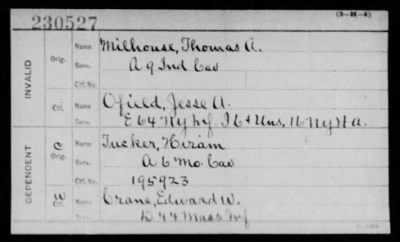 230527
(3-H-4)
INVALID
Orig.
Name Milhouse, Thomas A.
Serv. A 9 Ind Cav
Ctf. No.
Ctf.
Name Ofield, Jesse A.
Serv. E 64 NY Inf. I 6 & Uns, 16 NY H A.
DEPENDENT
C
Orig.
Name Tucker, Hiram
Serv. A 6 Mo Cav
Ctf. No. 195923
W
Ctf.
Name Crane, Edward W.
Serv. D 44 Mass Inf